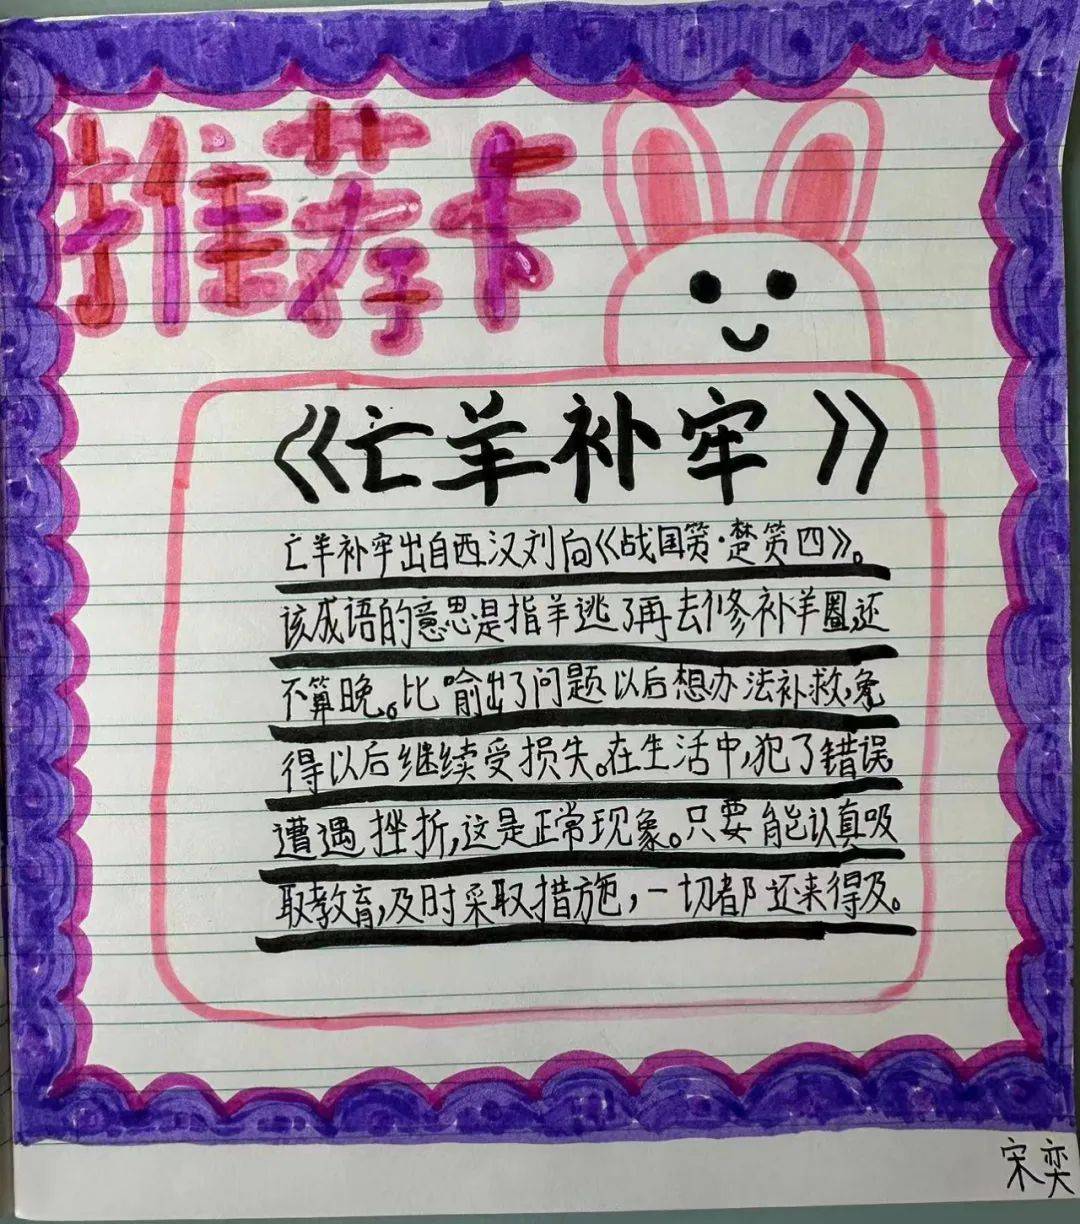 推荐卡
《亡羊补牢》
亡羊补牢出自西汉刘向《战国策·楚策四》。
该成语的意思是指羊逃了再去修补羊圈,还
不算晚。比喻出了问题以后想办法补救,免
得以后继续受损失。在生活中,犯了错误
遭遇挫折,这是正常现象。只要能认真吸
取教育,及时采取措施,一切都还来得及。
宋奕